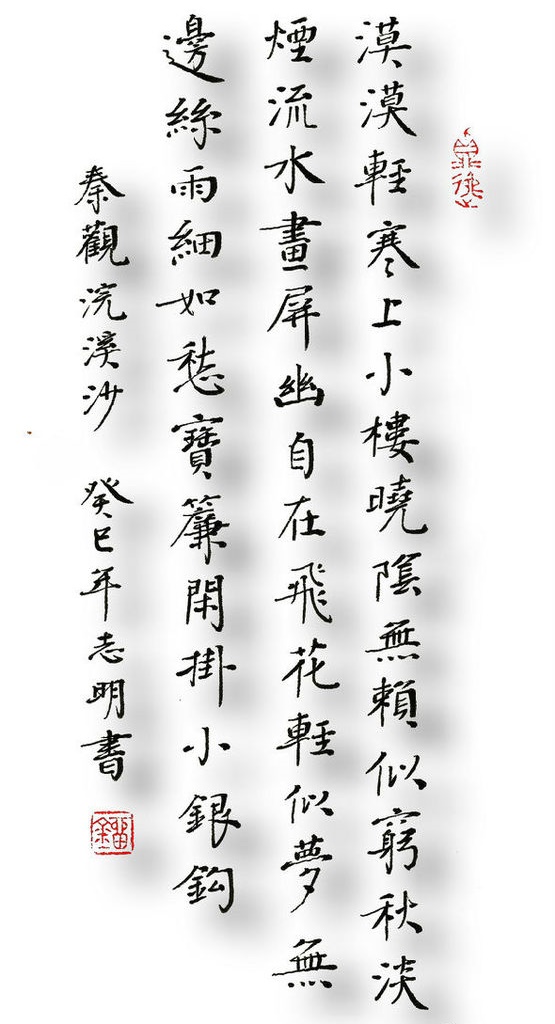 漠漠輕寒上小樓曉陰無賴似窮秋淡
煙流水畫屏幽自在飛花輕似夢無
邊絲雨細如愁寶簾閑掛小銀鈎
秦觀浣溪沙 癸巳年志明書